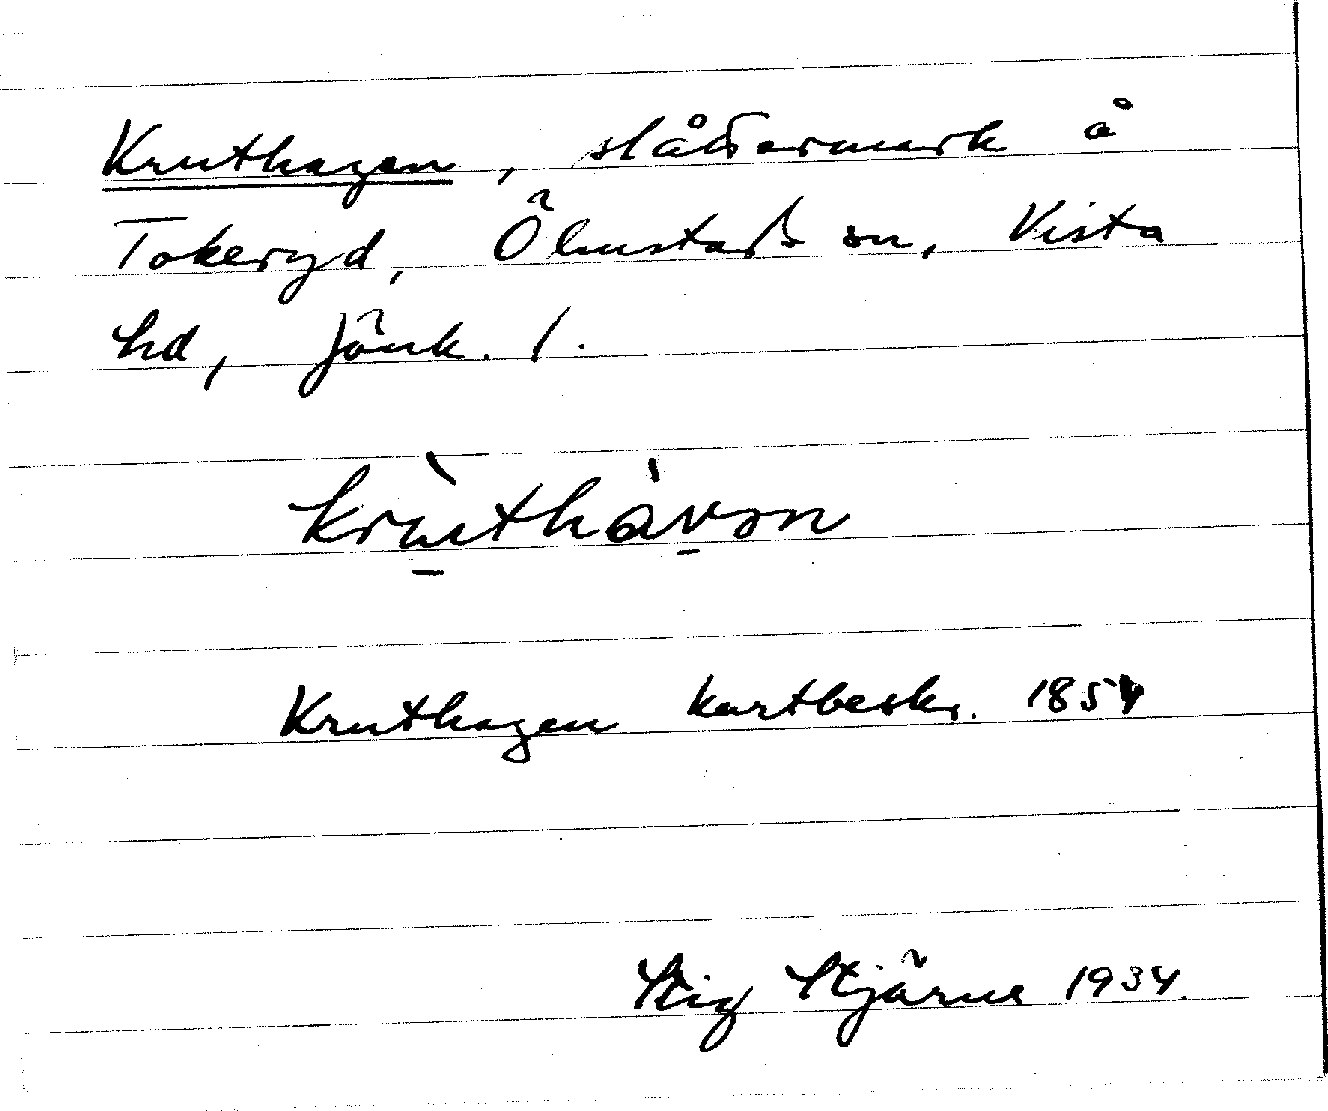 Kruthagen, slåttermark å
Tokeryd, Ölmstads sn, Vista
hd, Jönk. l.
krùthàvən
Kruthagen kartbeskr. 1854
Stig Stjärne 1934.